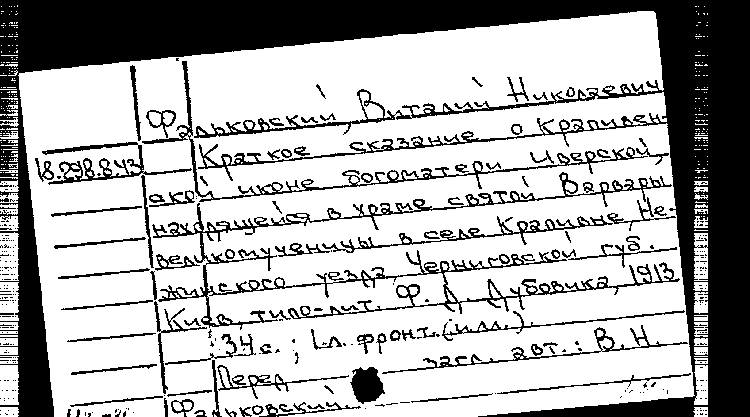 Фальковский, Виталий Николаевич
18.298.8.43
Краткое сказание о Крапивен-
ской иконе богоматери Иверской,
находящейся в храме святой Варвары
великомученицы в селе Крапивне, Не-
жинского уезда, Черниговской губ.
Киев, типо-лит. Ф. Д. Дубовика, 1913
34 с.; 1 л. фронт. (илл.).
Перед загл. авт.: В. Н.
Фальковский.